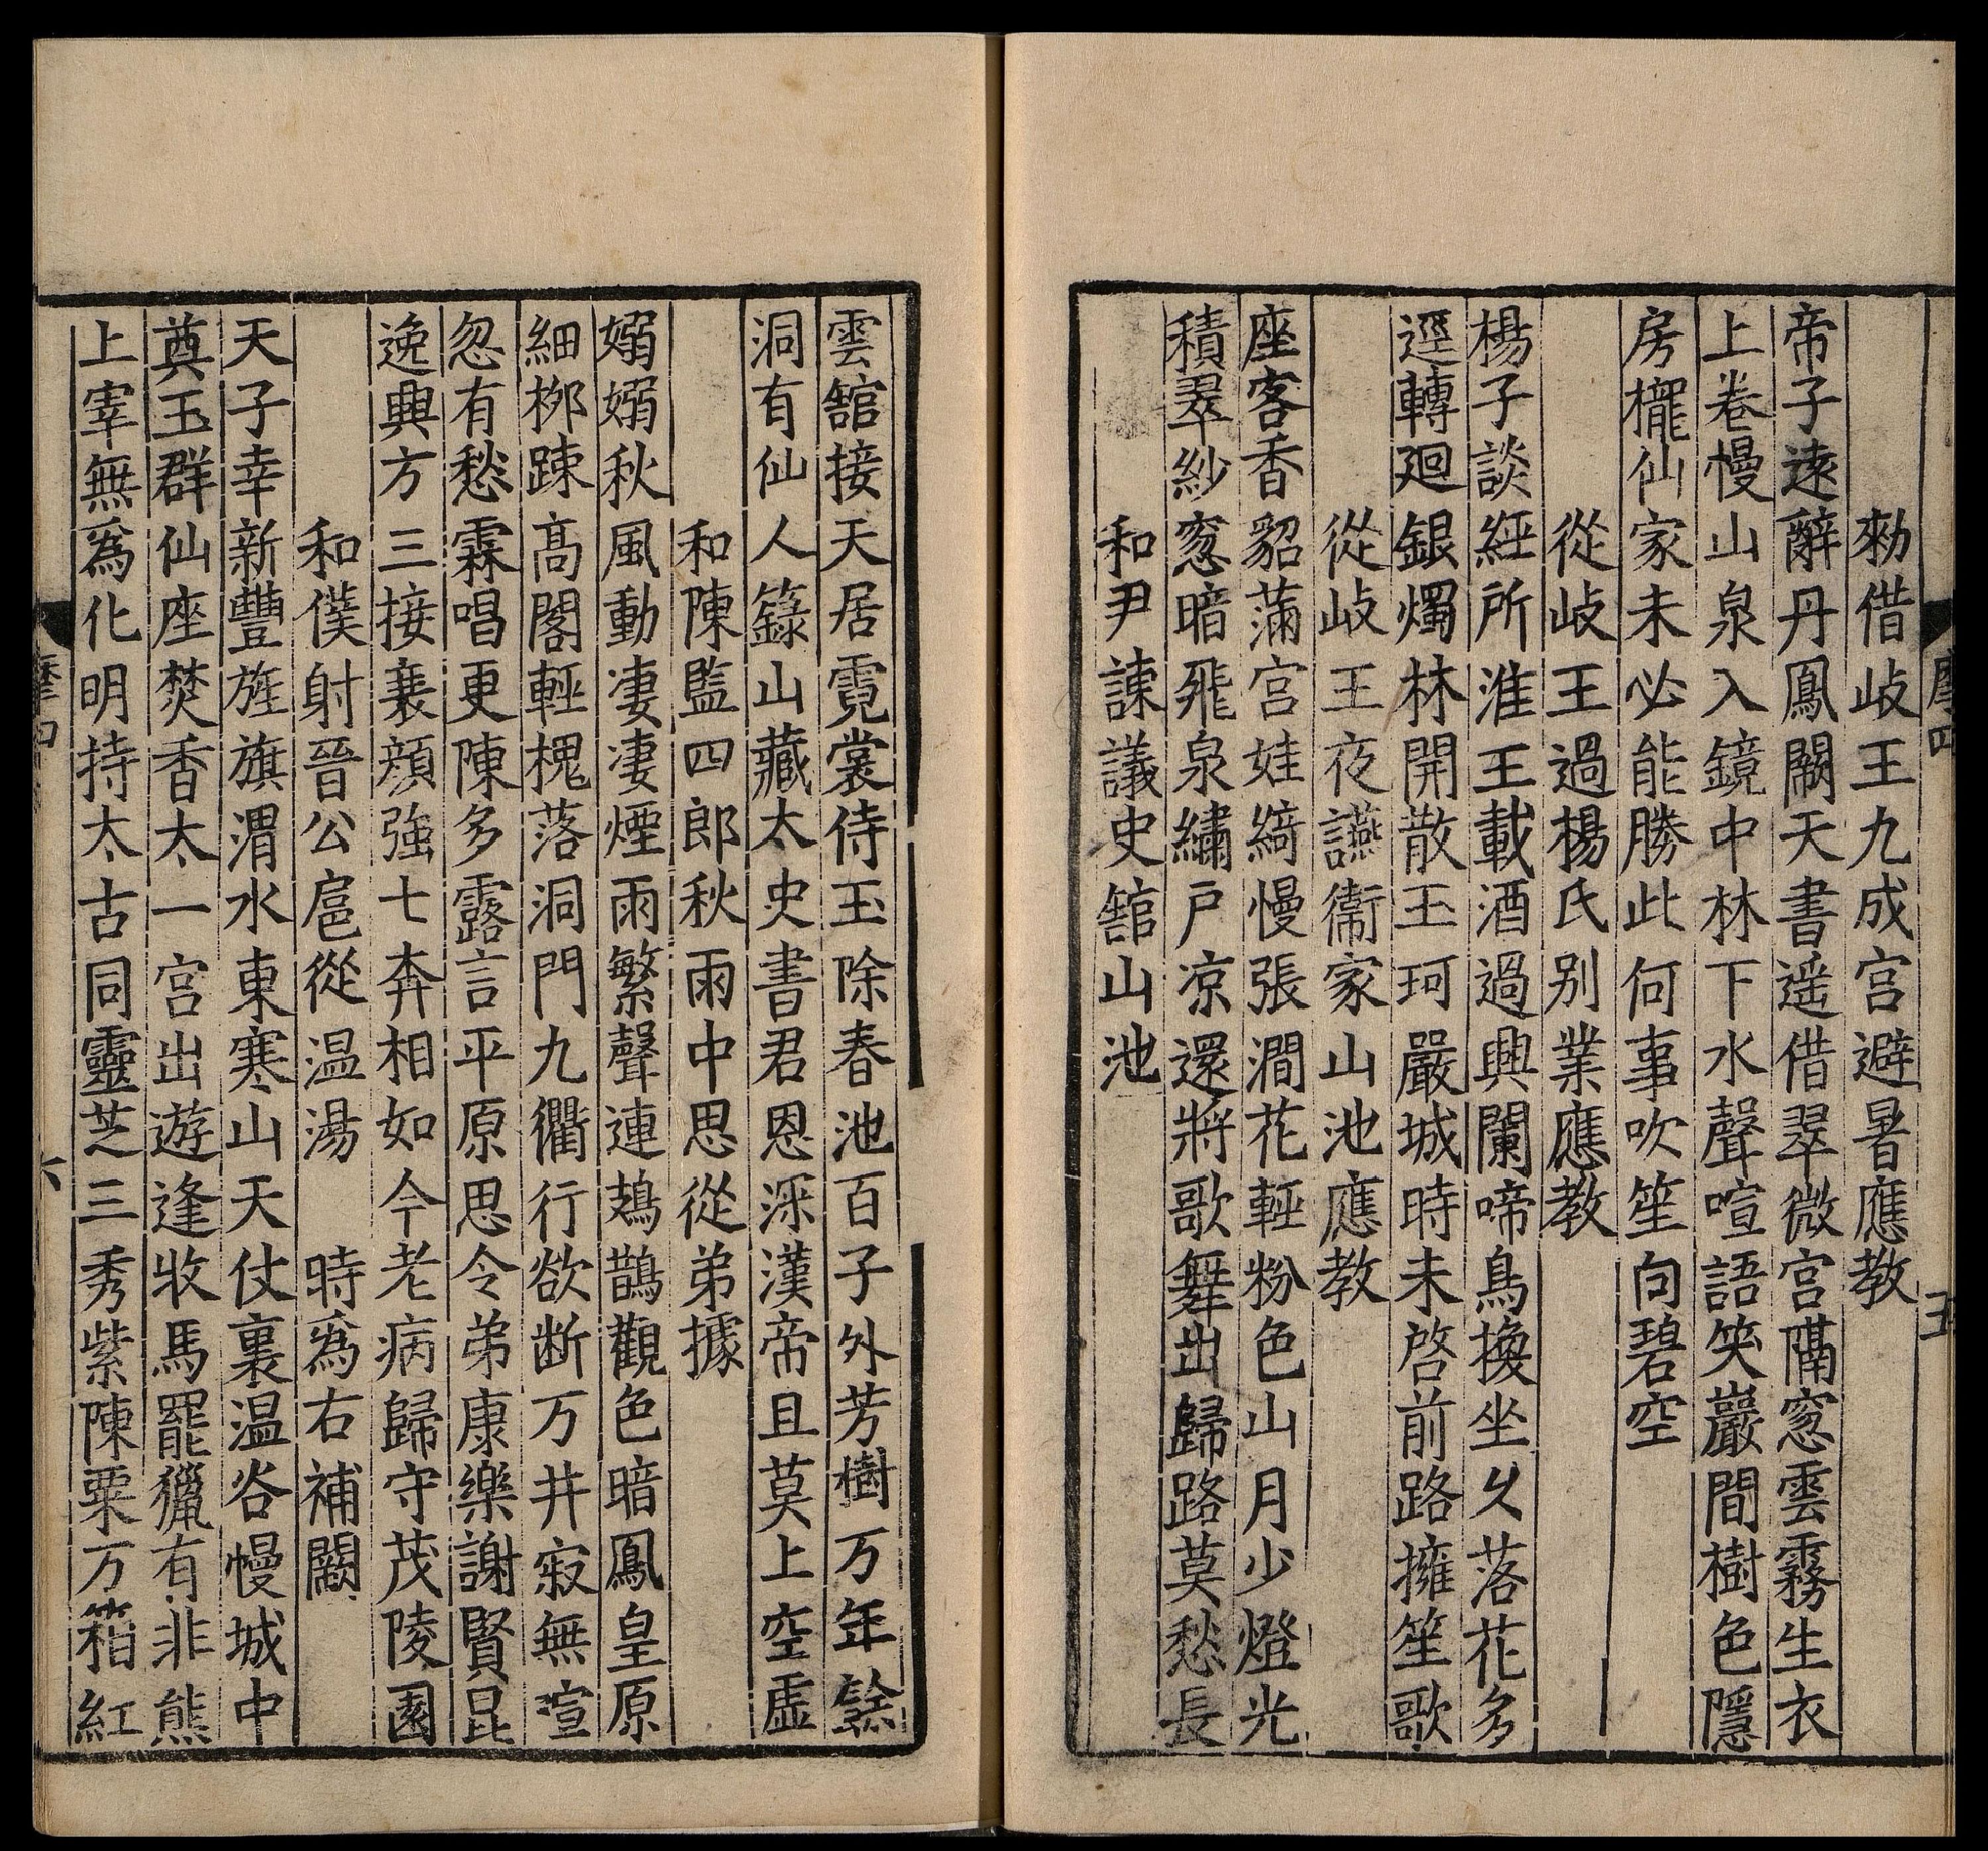 摩四
五
勑借岐王九成宮避暑應教
帝子遠辭丹鳳闕天書遥借翠微宮隔窓雲霧生衣
上卷幔山泉入鏡中林下水聲喧語笑巖間樹色隱
房櫳仙家未必能勝此何事吹笙向碧空
從岐王過楊氏别業應教
楊子談經所淮王載酒過興闌啼鳥換坐久落花多
逕轉廻銀燭林開散玉珂嚴城時未啓前路擁笙歌
從岐王夜讌衞家山池應教
座客香貂滿宮娃綺幔張澗花輕粉色山月少燈光
積翠紗窓暗飛泉繡戶凉還將歌舞出歸路莫愁長
和尹諫議史舘山池
雲舘接天居霓裳侍玉除春池百子外芳樹万年餘
洞有仙人籙山藏太史書君恩深漢帝且莫上空虛
和陳監四郎秋雨中思從弟據
嫋嫋秋風動凄凄煙雨繁聲連鳷鵲觀色暗鳳皇原
細栁踈高閣輕槐落洞門九衢行欲断万井寂無喧
忽有愁霖唱更陳多露言平原思令弟康樂謝賢昆
逸興方三接衰顔強七奔相如今老病歸守茂陵園
和僕射晉公扈從温湯　時爲右補闕
天子幸新豐旌旗渭水東寒山天仗裏温谷幔城中
奠玉群仙座焚香太一宮出遊逢牧馬罷獵有非熊
上宰無爲化明持太古同靈芝三秀紫陳粟万箱紅
摩四
六